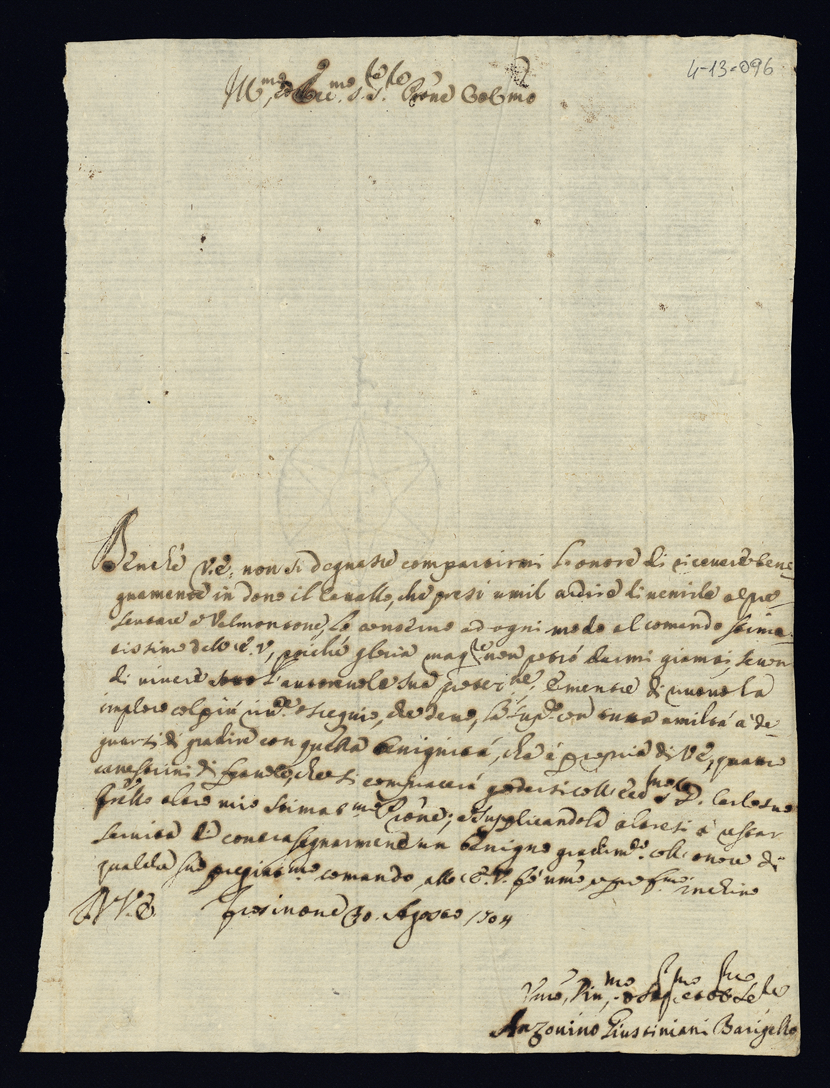 4-13-096
Ill.mo, ed Ecc.mo S. S.re P.rone Col.mo
Benché V.E. non si degnasse compartirmi l'onore di ricevere beni-
gnamente in dono il Cavallo, che presi umil ardire di venirle a pre-
sentare a Valmontone, lo conservo ad ogni modo al comando stima-
tissimo dell'E.V., poiché gloria mag.re non potrò darmi giamai, se non
di vivere sotto l'autorevole sua
imploro col più riv.e ossequio, che devo, la sup.co con tutta umiltà a de-
gnarsi di gradire con quella benignità, ch'è propria di V.E., quattro
canestrini di che si compiacerà godersi coll'Ecc.mo S. D. Carlo suo
fr.ello altro mio stimat.mo P.rone; e supplicandola altresì a restar
servita di contrasegnarmene un benigno gradim.o coll'onore di
qualche suo pregiat.mo comando, alla E.V. fò um.e prof.mo inchino
D. V.E. Frosinone 30. Agosto 1704
Um.o, Div.mo,
Antonino Giustiniani Barigello